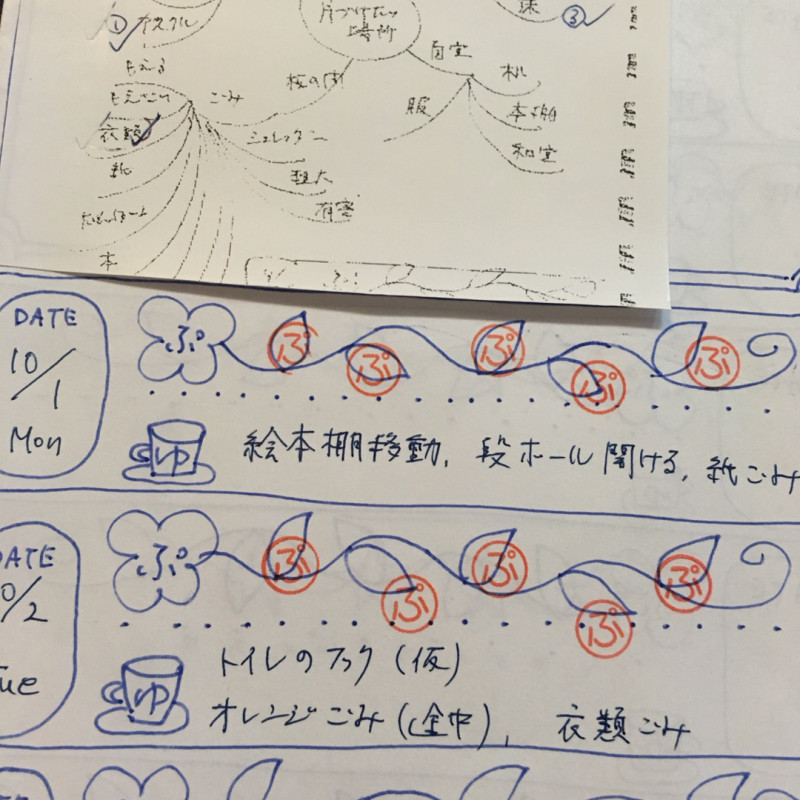 ① オスカル
片づけたい
場所
③
もえる
もえない
衣類
紙
本
ごみ
シュレッダー
粗大
有害
自室
服
机
本棚
和室
DATE
10/1
Mon
ぷ ぷ ぷ ぷ ぷ ぷ
ゆ 絵本棚移動, 段ホール開ける, 紙ごみ
DATE
0/2
ue
ぷ ぷ ぷ ぷ ぷ ぷ
ゆ トイレのフック (仮)
オレンジごみ (途中), 衣類ごみ